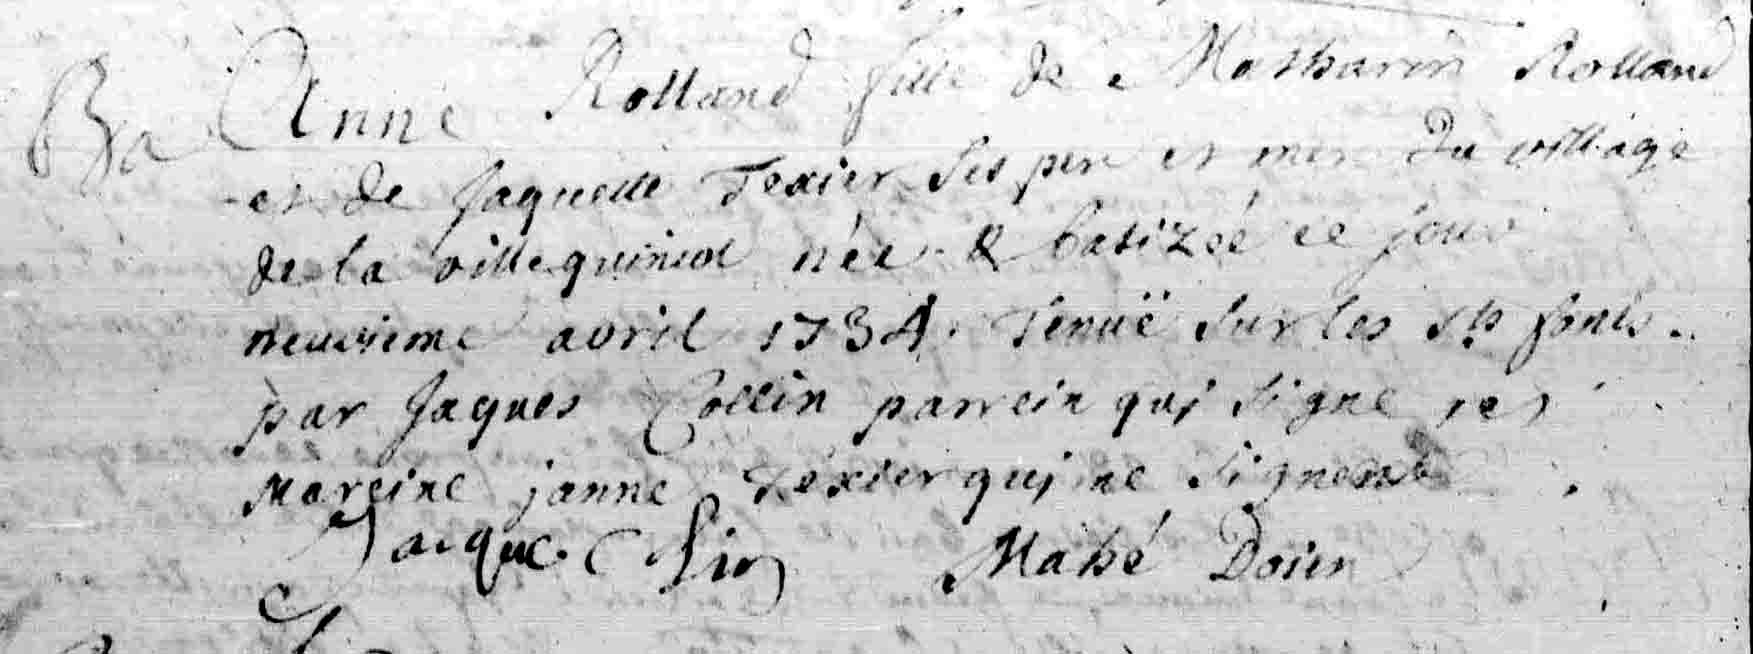 Ba Anne Rolland fille de Matharin Rolland
et de Jaquette Texier ses pere et mere du village
de la ville née & batizée ce jour
neuvieme avril 1734. Tenuë sur les sts fonts
par Jaques Collin parrein qui signe et
mareine janne Texier qui ne signent
Jacque Colin Mahé Doien